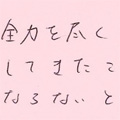 全力を尽く
してまたこ
ならないと